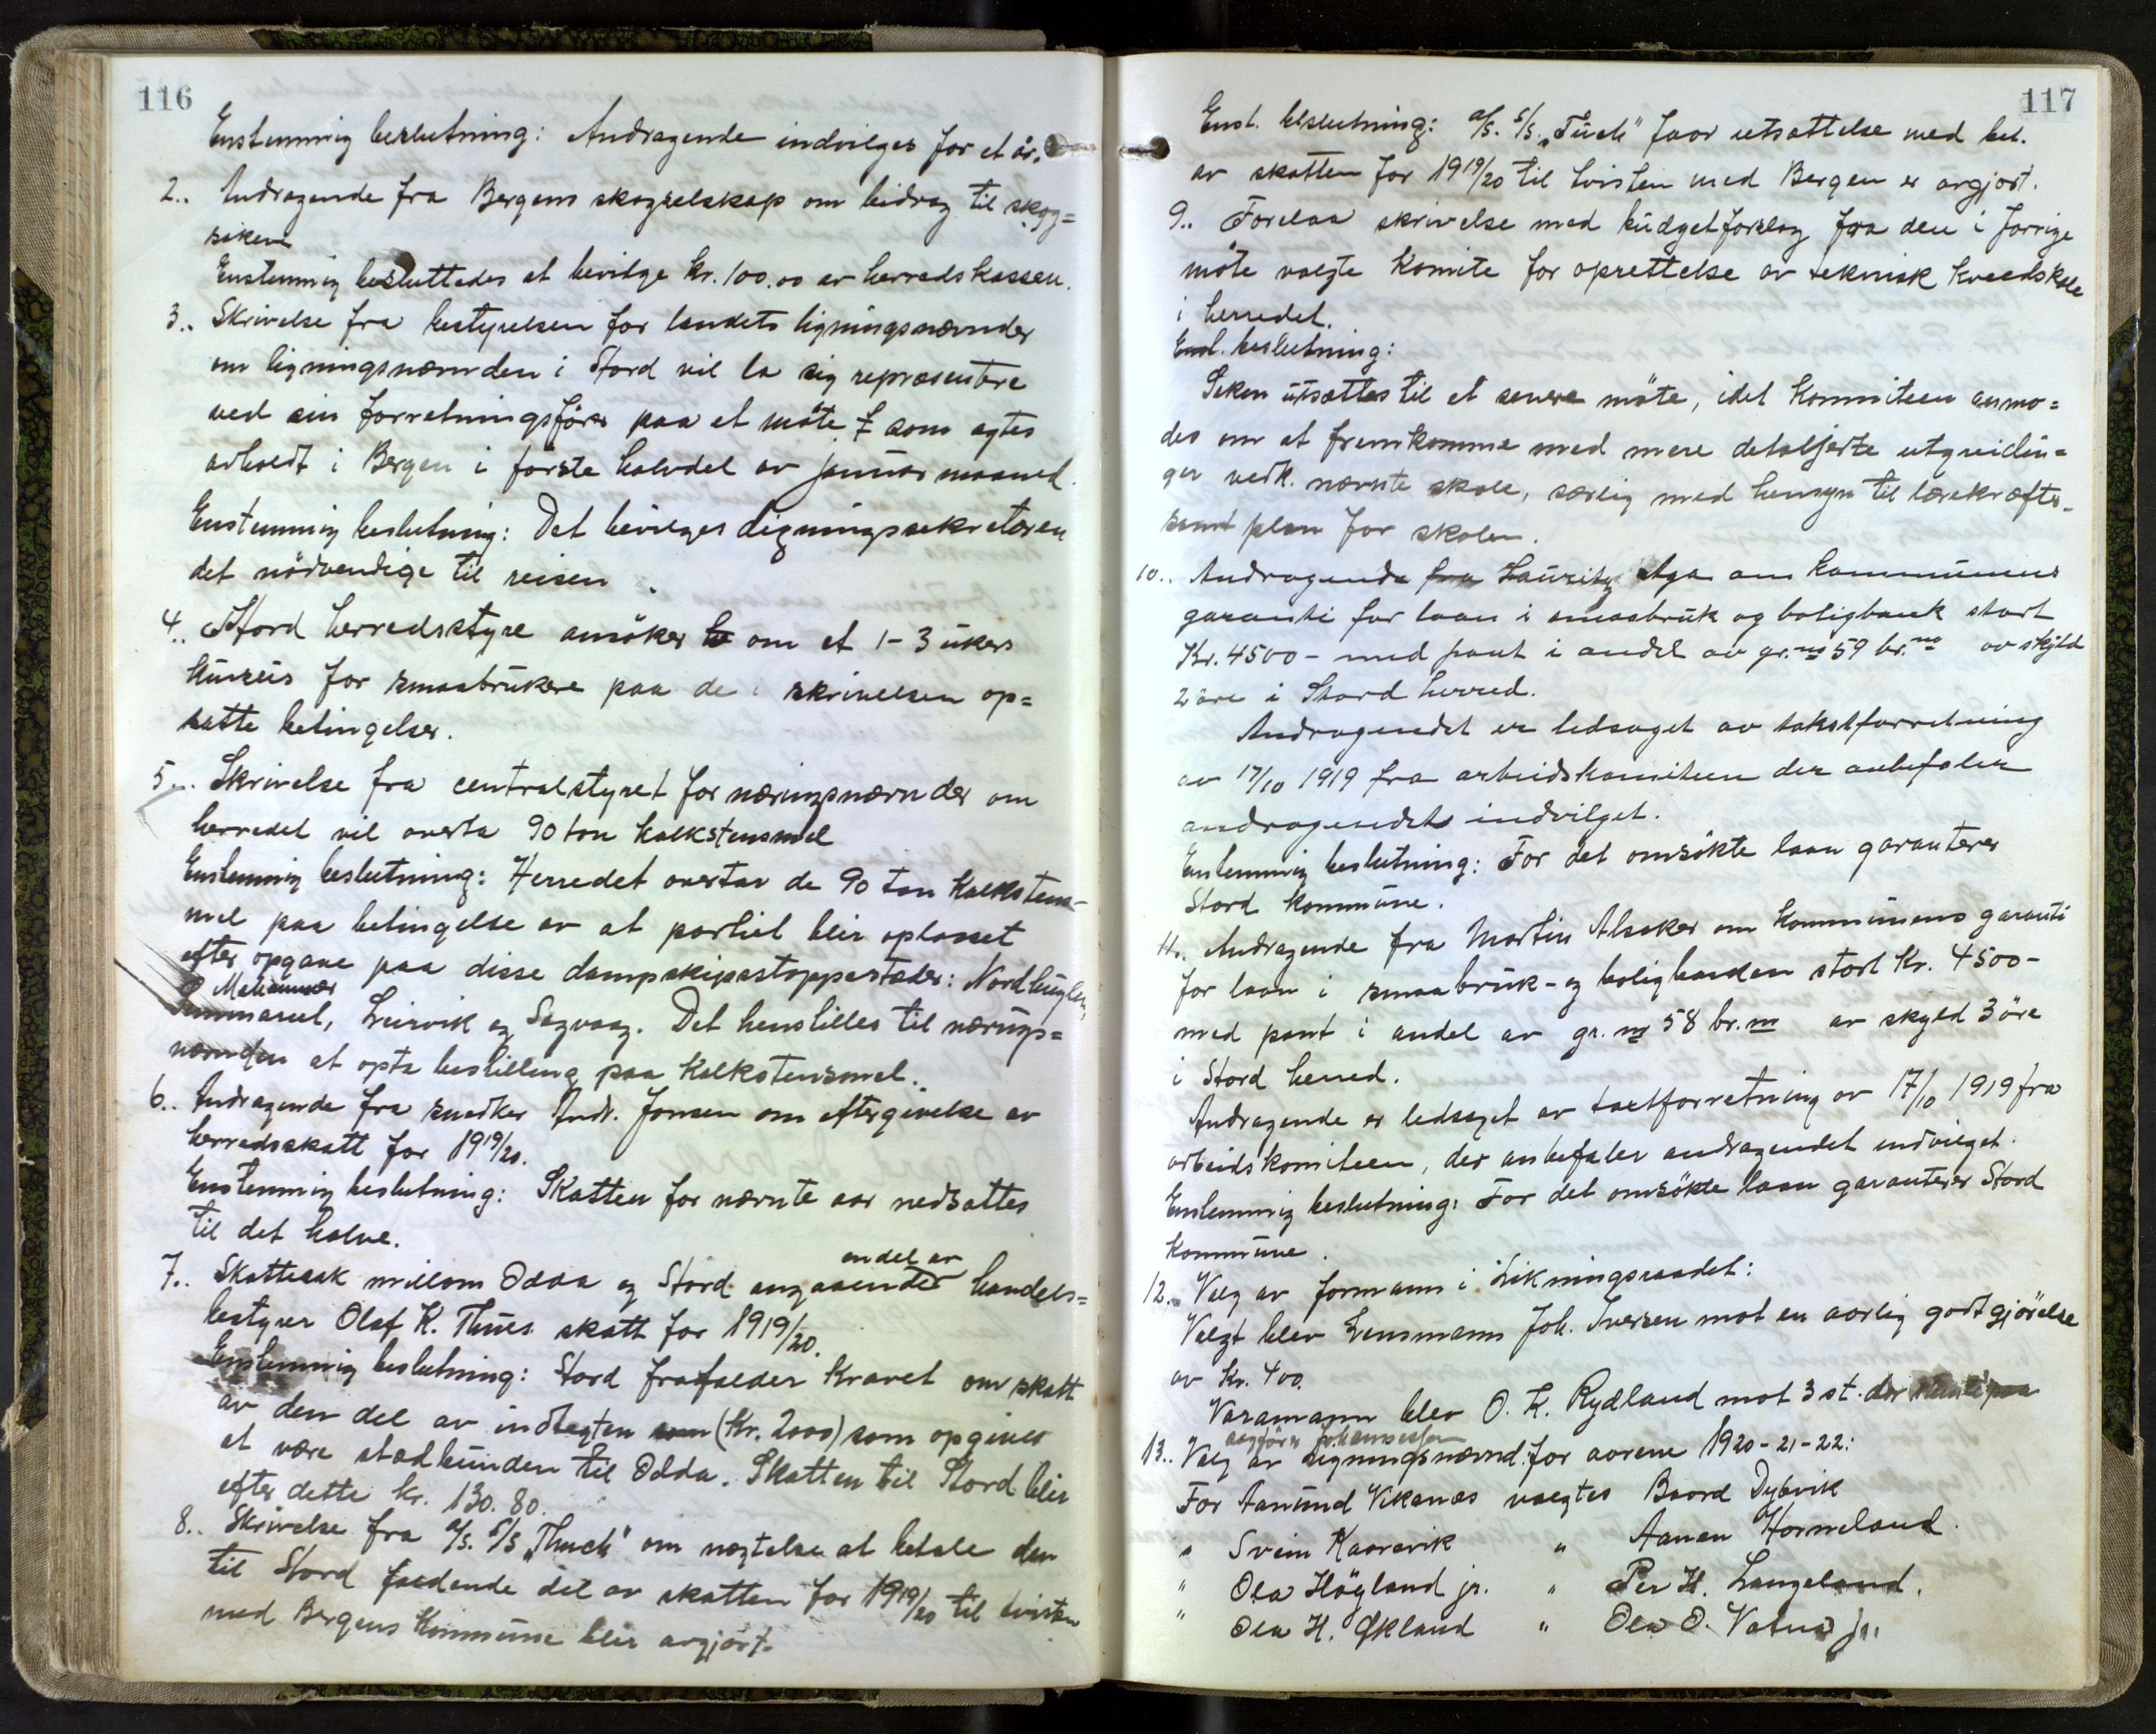 116
Enstemmig beslutning: Andragende indvilges for et år.
2.. Andragende fra Bergens skogselskap om bidrag til skog=
saken
Enstemmig besluttedes at bevilge kr. 100.00 av herredskassen.
3.. Skrivelse fra bestyrelsen for landets ligningsnævnder
om ligningsnævnden i Stord vil la sig repræsentere
ved sin forretningsfører paa et møte som agtes
avholdt i Bergen i første halvdel av januar maaned.
Enstemmig beslutning: Det bevilges ligningssekretæren
det nödvendige til reisen.
4.. Stord herredsstyre ansöker om et 1-3 ukers
kursus for smaabrukere paa de i skrivelsen op=
satte betingelser.
5... Skrivelse fra centralstyret for næringsnævnder om
herredet vil overta 90 ton kalkstensmel
Enstemmig beslutning: Herredet overtar de 90 ton Kalkstens-
mel paa betingelse av at partiet blir oplosset
efter opgave paa disse dampskipsstoppesteder: Nordhuglen,
Leirvik og Sagvaag. Det henstilles til nærings=
nævnden at opta bestilling paa Kalkstensmel.
6.. Andragende fra snedker Andr. Jonsen om eftergivelse av
herredsskatt for 1919/20.
Enstemmig beslutning: Skatten for nævnte aar nedsattes
til det halve.
7.. Skattesak millom Odda og Stord angaaende endel av handels=
bestyrer Olaf K. Thues skatt for 1919/20.
Enstemmig beslutning: Stord frafalder kravet om skatt
av den del av indtegten som (Kr. 2000) som opgives
at være stedbunden til Odda. Skatten til Stord blir
efter dette kr. 130.80.
8.. Skrivelse fra A/S. S/S „Thuch" om negtelse at betale den
til Stord faldende del av skatten for 1919/20 til tvisten
med Bergens Kommune blir avgjort.
117
Enst. beslutning: A/S. S/S. „Tuch" faar utsattelse med bet.
av skatten for 1919/20 til tvisten med Bergen er avgjort.
9.. Forelaa skrivelse med budgetforslag fra den i forrige
möte valgte komite for oprettelse av teknisk kveldskole
i herredet.
Enst. beslutning:
Saken utsættes til et senere möte, idet komiteen anmo=
des om at fremkomme med mere detaljerte utgreidin=
ger vedk. nævnte skole, særlig med hensyn til lærekræfter
samt plan for skolen.
10.. Andragende fra Lauritz Aga om kommunens
garanti for laan i smaabruk og boligbank stort
Kr. 4500- med pant i andel av gr. no 59 br. no av skyld
2 öre i Stord herred.
Andragendet er ledsaget av takstforretning
av 17/10 1919 fra arbeidskomiteen der anbefaler
andragendet indvilget.
Enstemmig beslutning: For det omsökte laan garanterer
Stord kommune.
11. Andragende fra Martin Alsaker om kommunens garanti
for laan i smaabruk- og boligbanken stort Kr. 4500-
med pant i andel av gr. no 58 br. no av skyld 3 öre
i Stord herred.
Andragende er ledsaget av taxtforretning av 17/10 1919 fra
arbeidskomiteen, der anbefaler andragendet indvilget.
Enstemmig beslutning: For det omsökte laan garanterer Stord
kommune.
12.. Valg av formann i Likningsraadet:
Valgt blev Lensmann Joh. Iversen mot en aarlig godtgjörelse
av Kr. 400.
Varamann blev O. K. Rydland mot 3 st. der
sagförer Johannessen
13.. Valg av ligningsnævnd for aarene 1920-21-22:
For Aamund Vikanes valgtes Baard Dybvik
" Svein Kaarevik " Aanen Horneland.
" Ola Högland jr. " Per H. Langeland.
" Ola H. Økland " Ola O. Vatna jr.